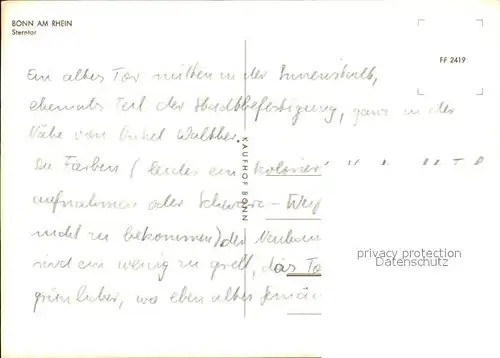 BONN AM RHEIN
Sterntor
FF 2419
Ein altes Tor mitten in der Innenstadt,
ehemals Teil der Stadtbefestigung, ganz in der
Nähe von Onkel Walther.
Die Farben (leider ein
aufnahmen oder Schwarz-Weiß
nicht zu bekommen) der
sind ein wenig zu grell, das To
grünlicher, wo eben altes Gemäu
KAUFHOF BONN
privacy protection
Datenschutz